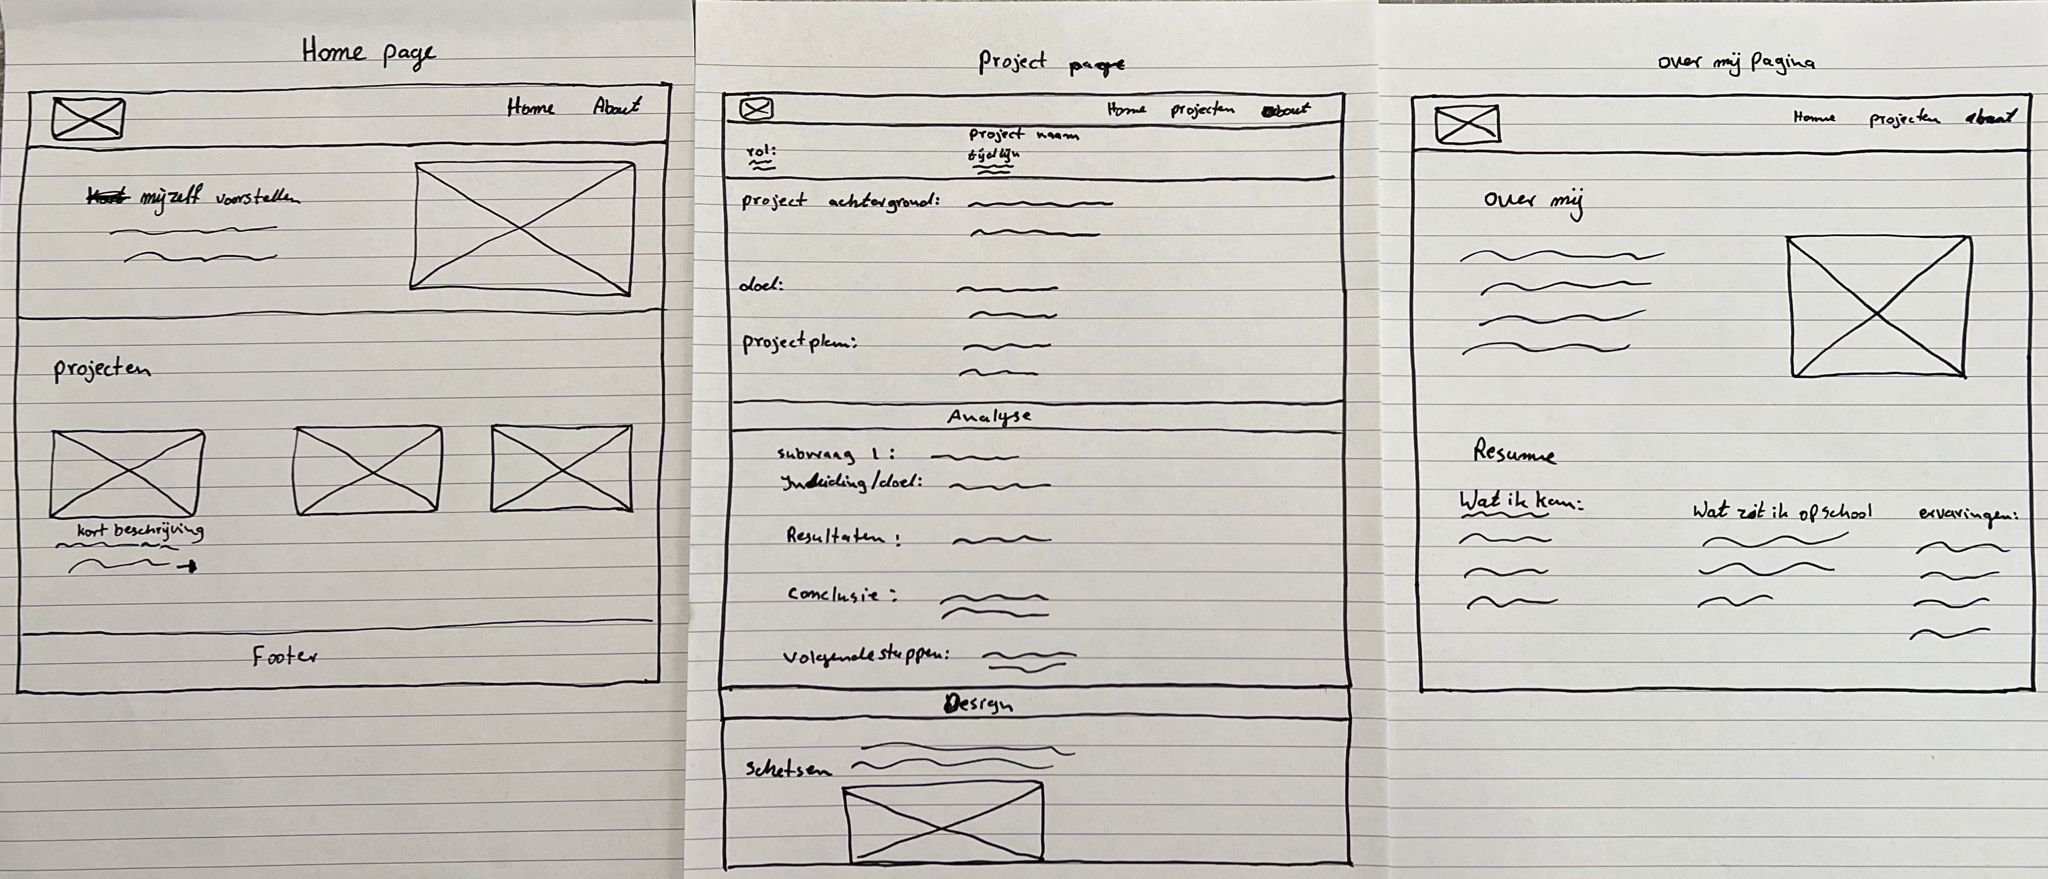 Home page
Home About
mijzelf voorstellen
projecten
kort beschrijving
Footer
project page
Home projecten about
project naam
rol:
tijdlijn
project achtergrond:
doel:
projectplan:
Analyse
subvraag 1:
Inleiding/doel:
Resultaten:
Conclusie:
Volgende stappen:
Design
schetsen
over mij pagina
Home projecten about
over mij
Resume
Wat ik kan: Wat zit ik op school ervaringen: